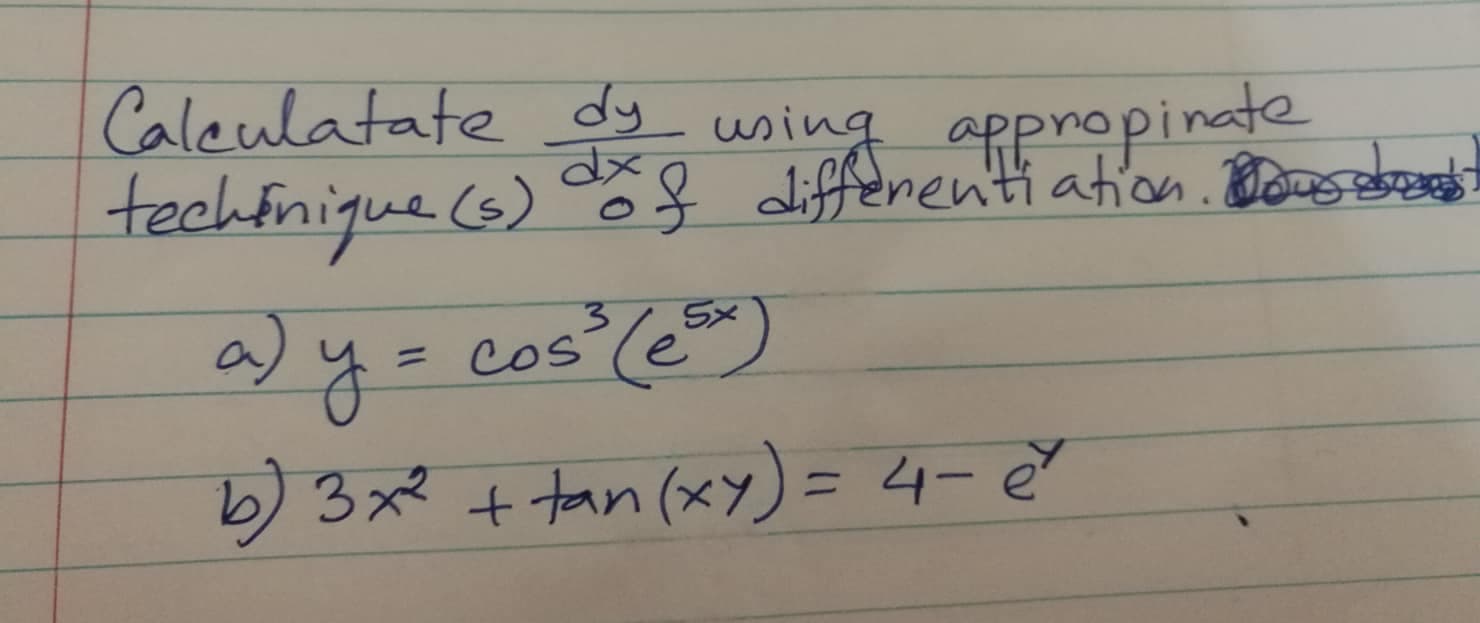 Calculatate dy/dx using appropinate
technique(s) of differentiation.
a) y = cos³(e⁵ˣ)
b) 3x² + tan(xy) = 4 - eʸ